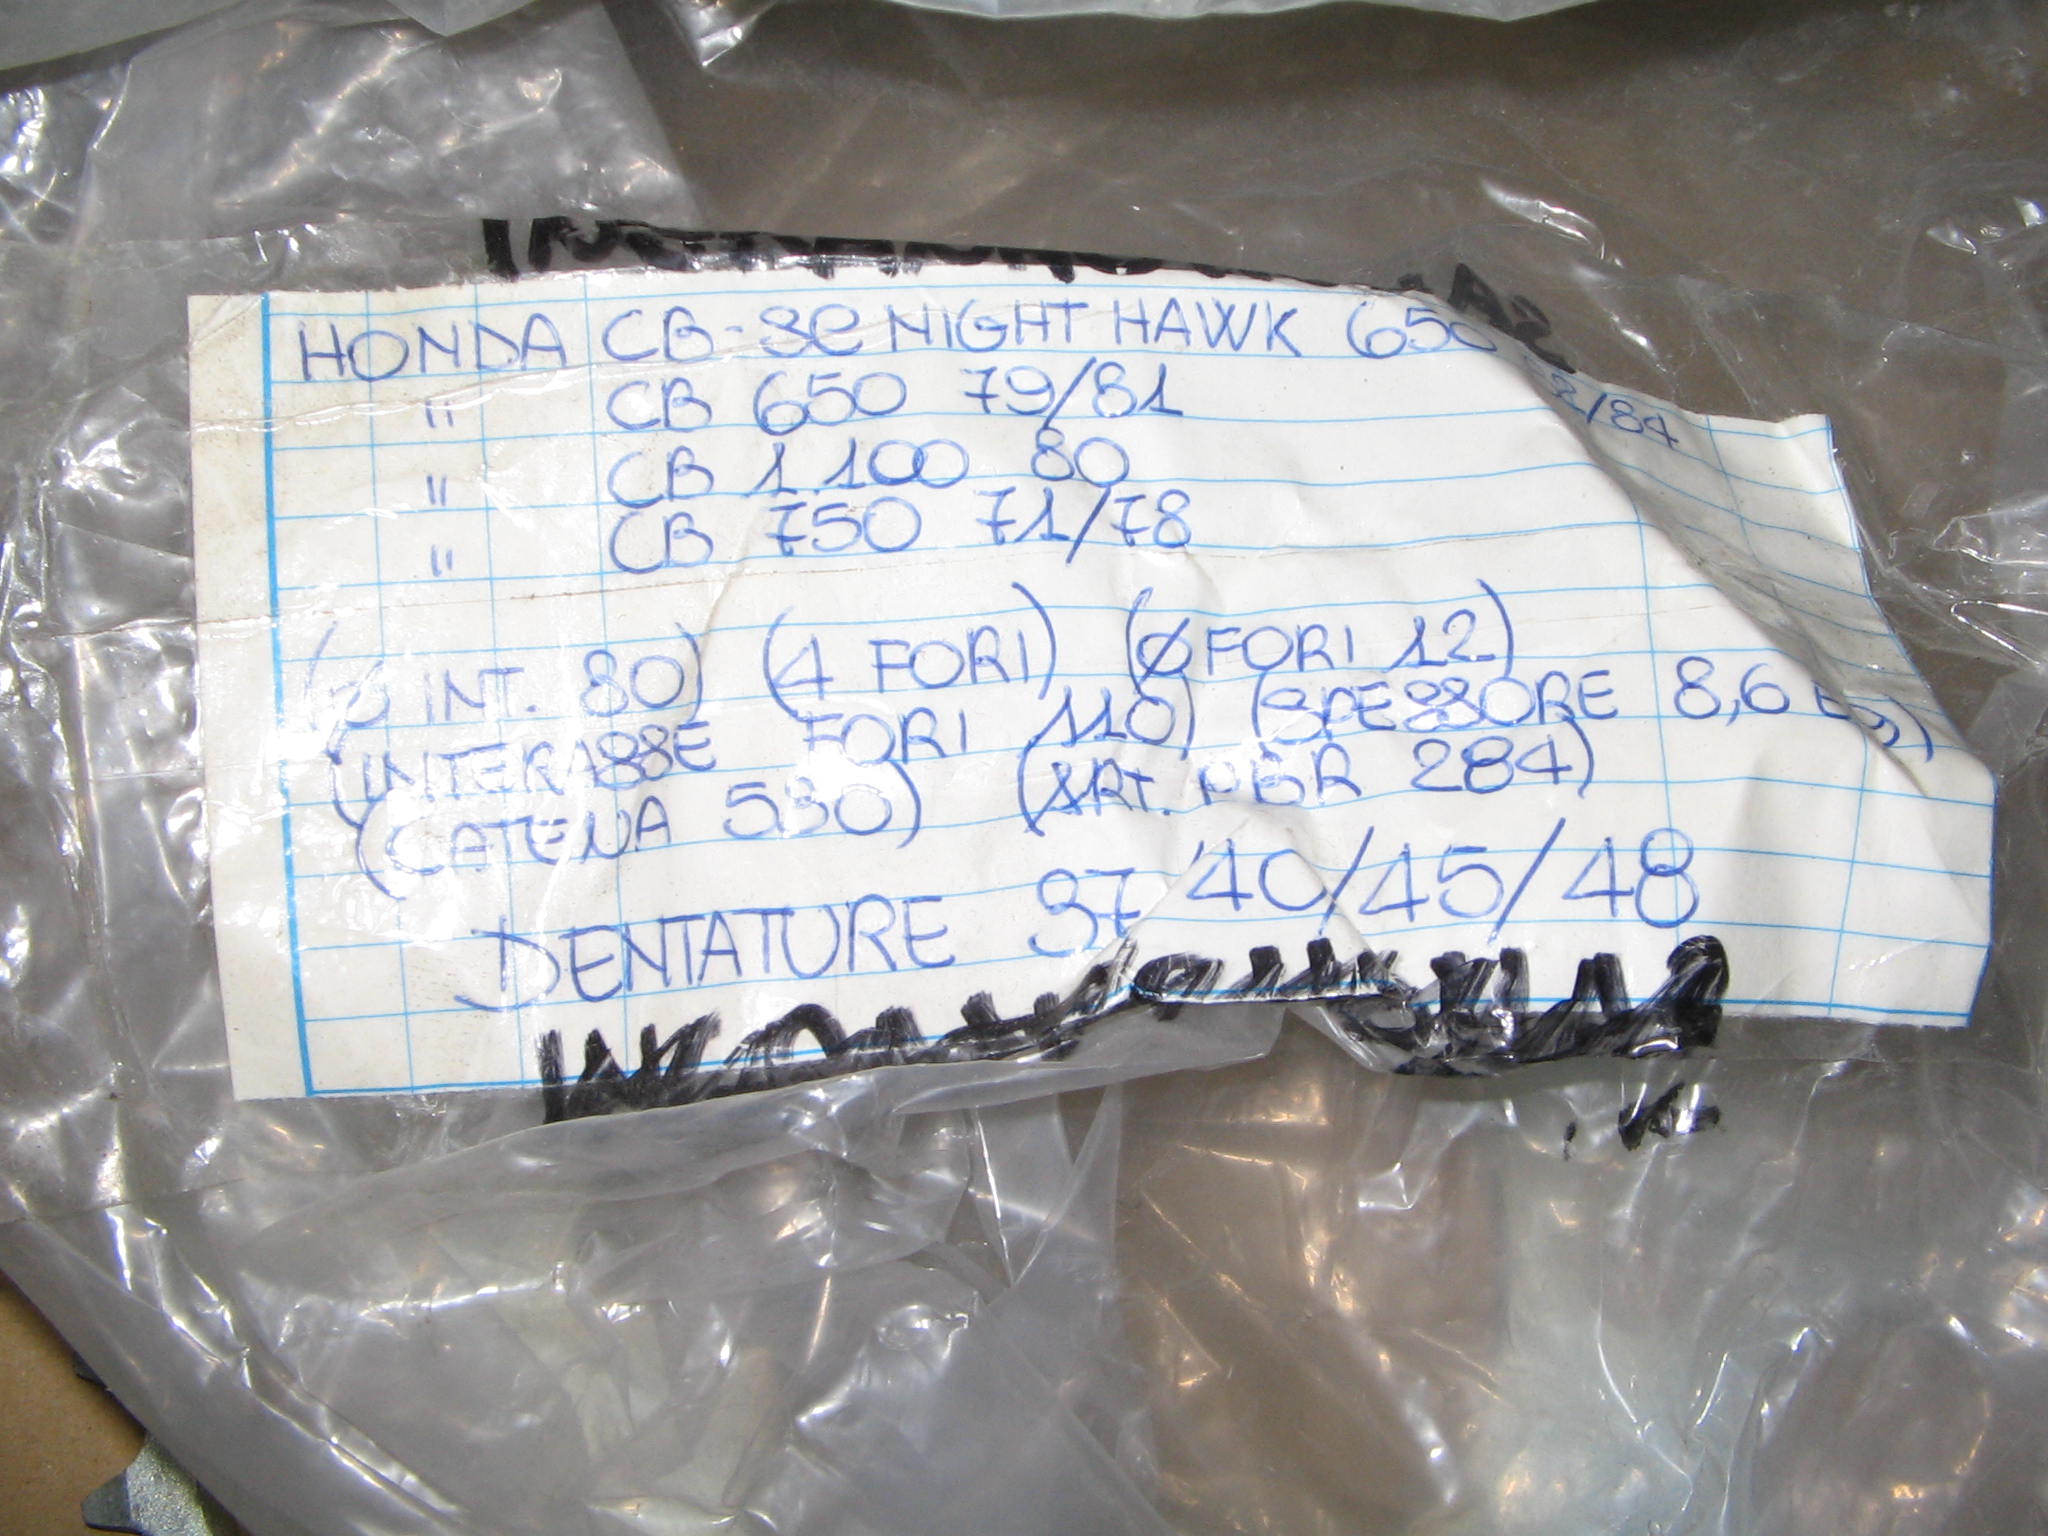 HONDA CB-SC NIGHT HAWK 650 82/84
" CB 650 79/81
" CB 1.100 80
" CB 750 71/78
(Ø INT. 80) (4 FORI) (Ø FORI 12)
(INTERASSE FORI 110) (SPESSORE 8,6
(CATENA 530) (ART. PBR 284)
DENTATURE 37 40/45/48